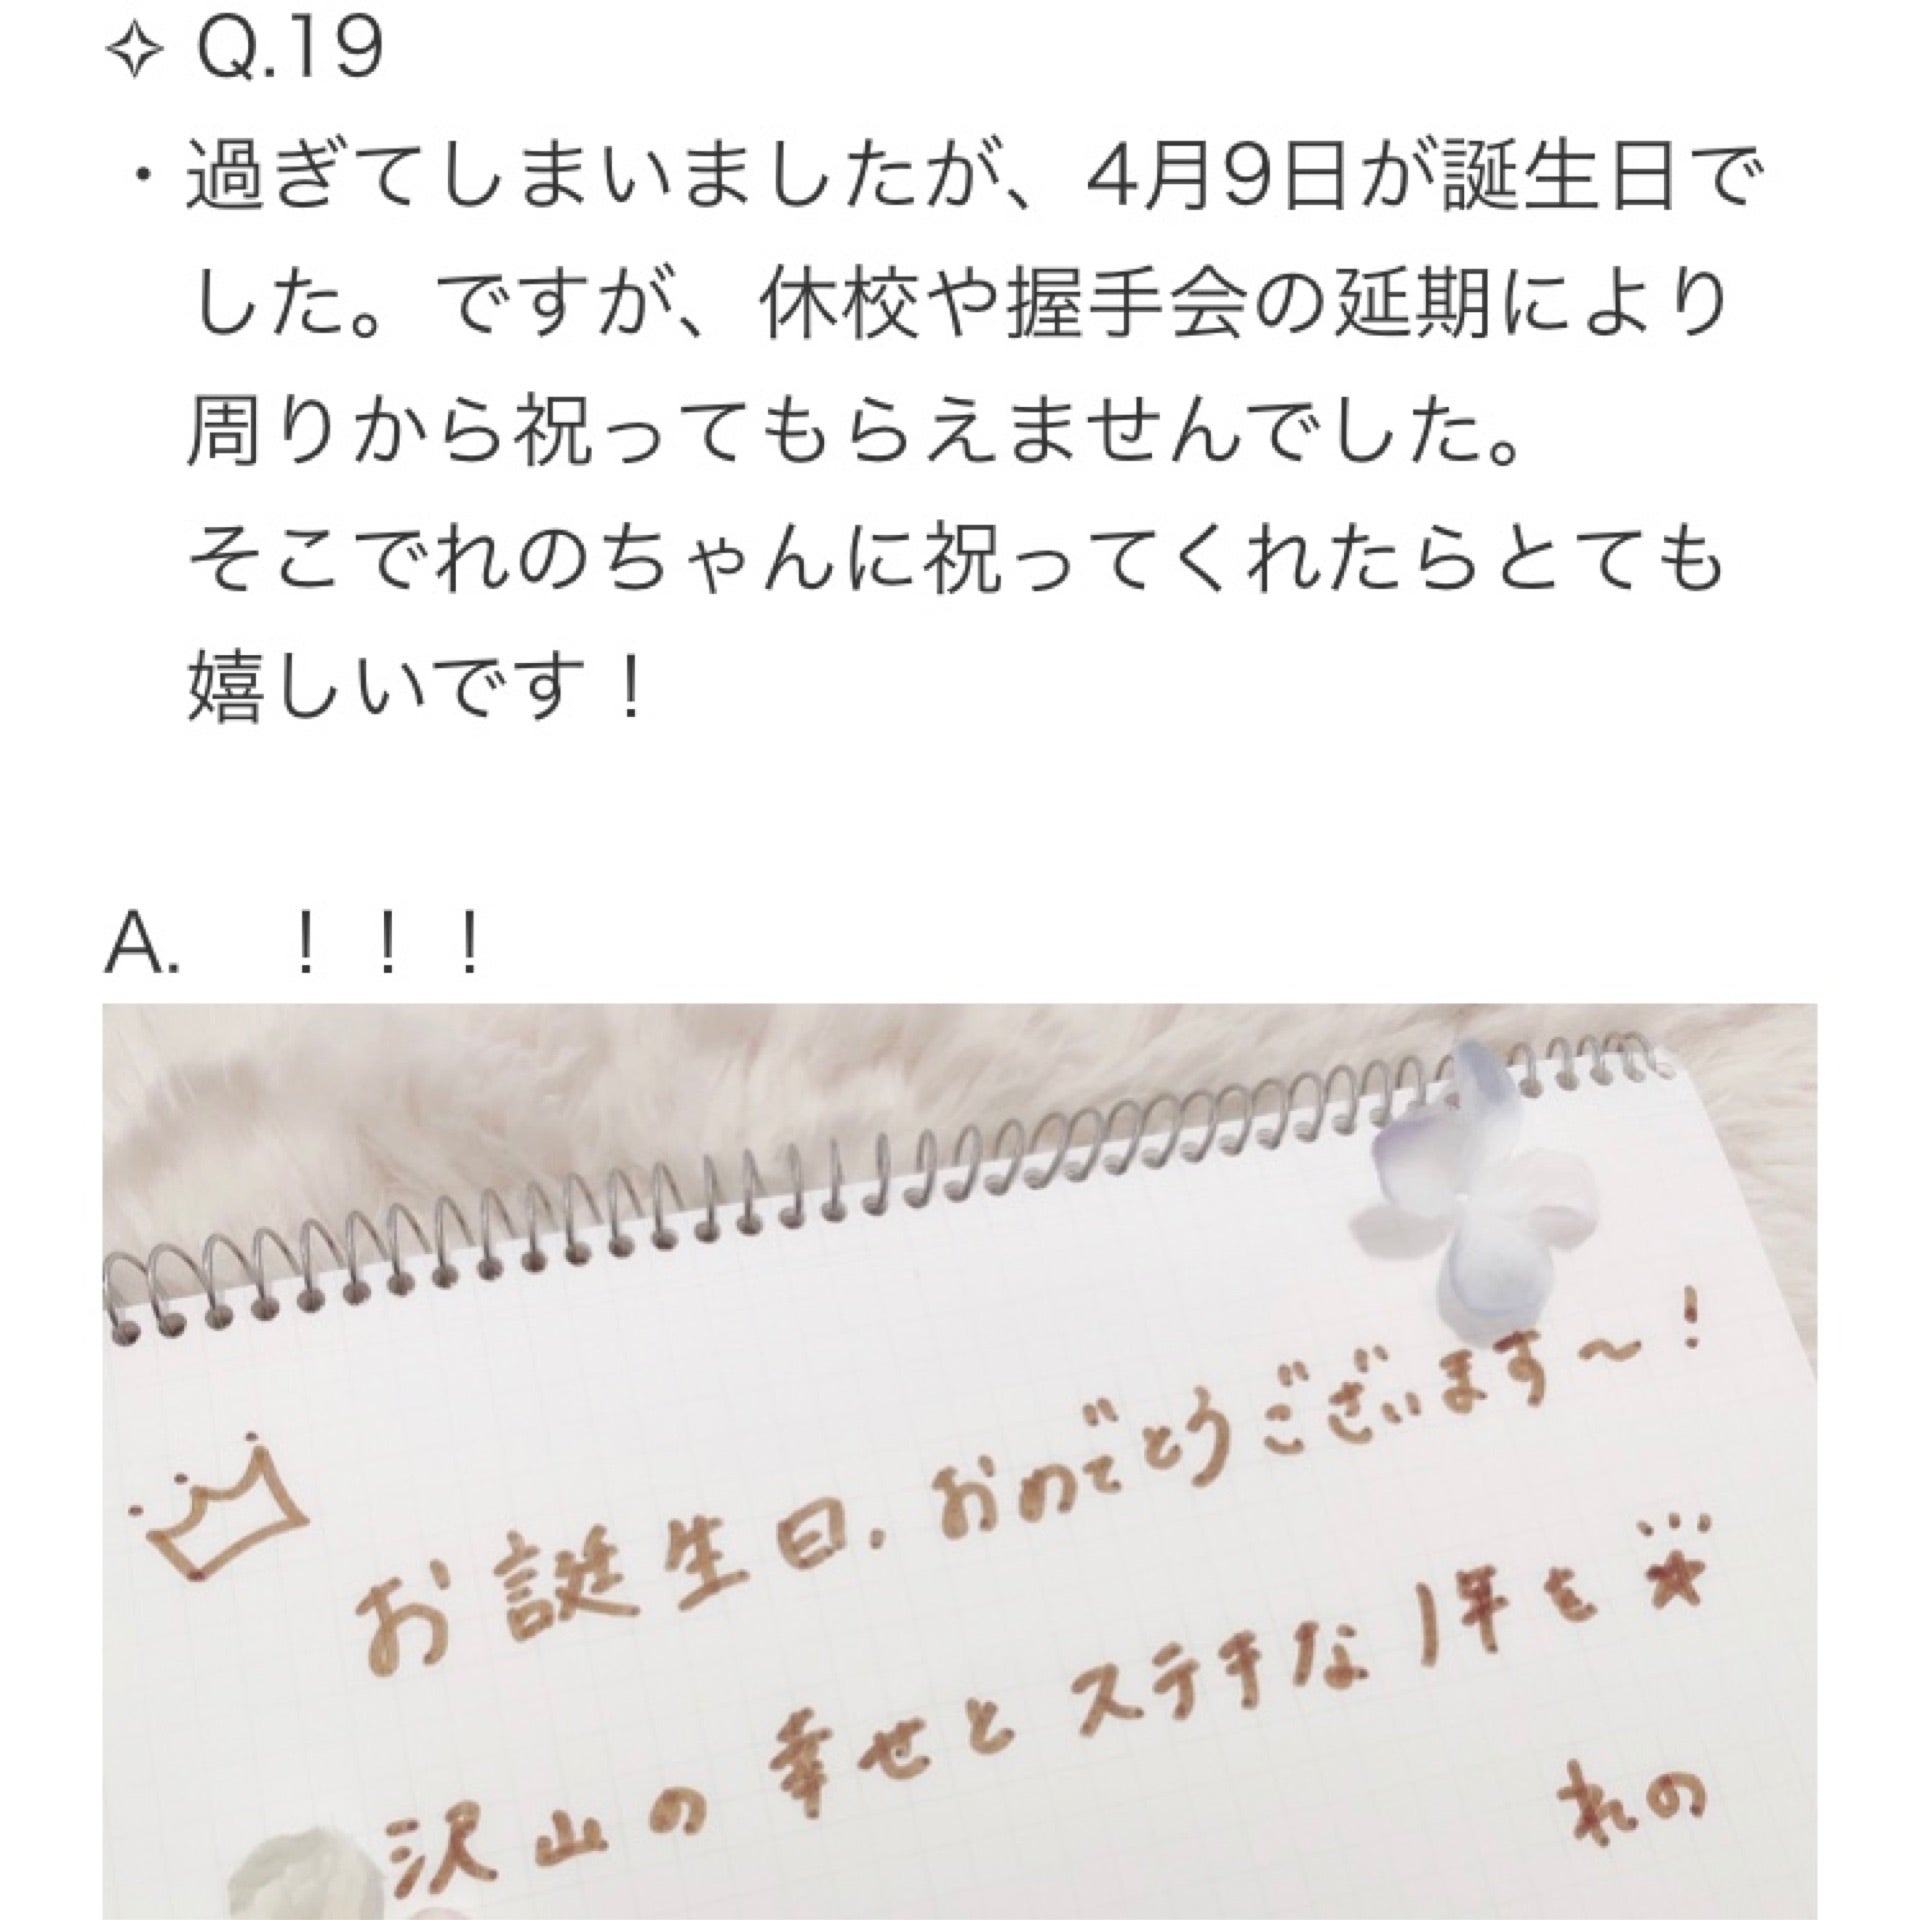 ✧ Q.19
・過ぎてしまいましたが、4月9日が誕生日で
した。ですが、休校や握手会の延期により
周りから祝ってもらえませんでした。
そこでれのちゃんに祝ってくれたらとても
嬉しいです！
A.　！！！
お誕生日、おめでとうございます〜！
沢山の幸せとステキな1年を☆
れの